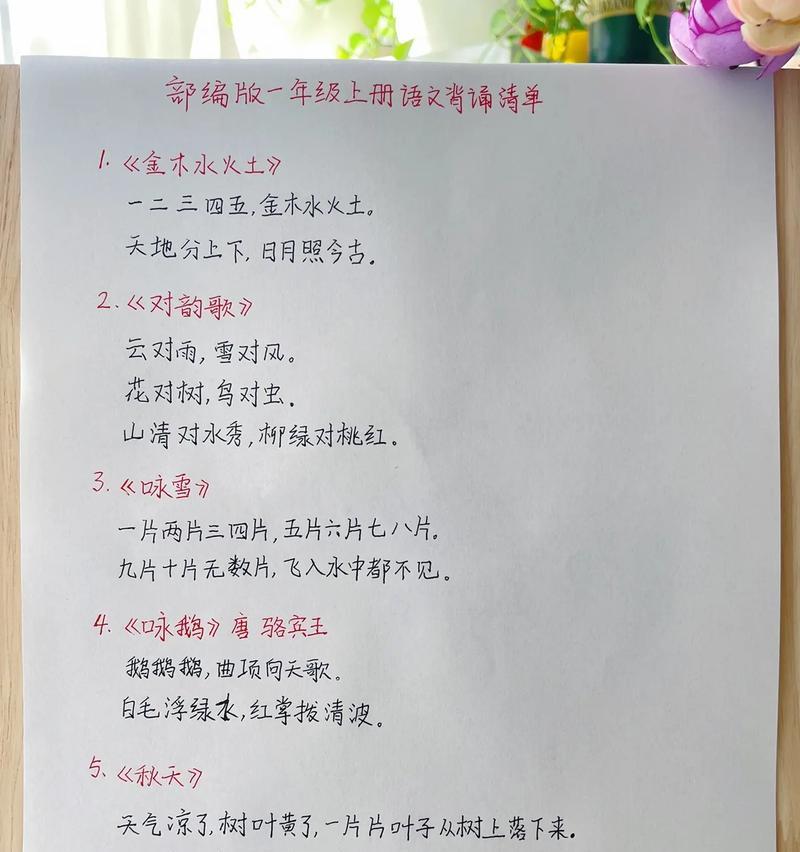 部编版一年级上册语文背诵清单
1.《金木水火土》
一二三四五,金木水火土。
天地分上下,日月照今古.
2.《对韵歌》
云对雨,雪对风。
花对树,鸟对虫.
山清对水秀,柳绿对桃红。
3.《咏雪》
一片两片三四片,五片六片七八片。
九片十片无数片,飞入水中都不见。
4.《咏鹅》唐 骆宾王
鹅鹅鹅,曲项向天歌。
白毛浮绿水,红掌拨清波。
5.《秋天》
天气凉了,树叶黄了,一片片叶子从树上落下来.